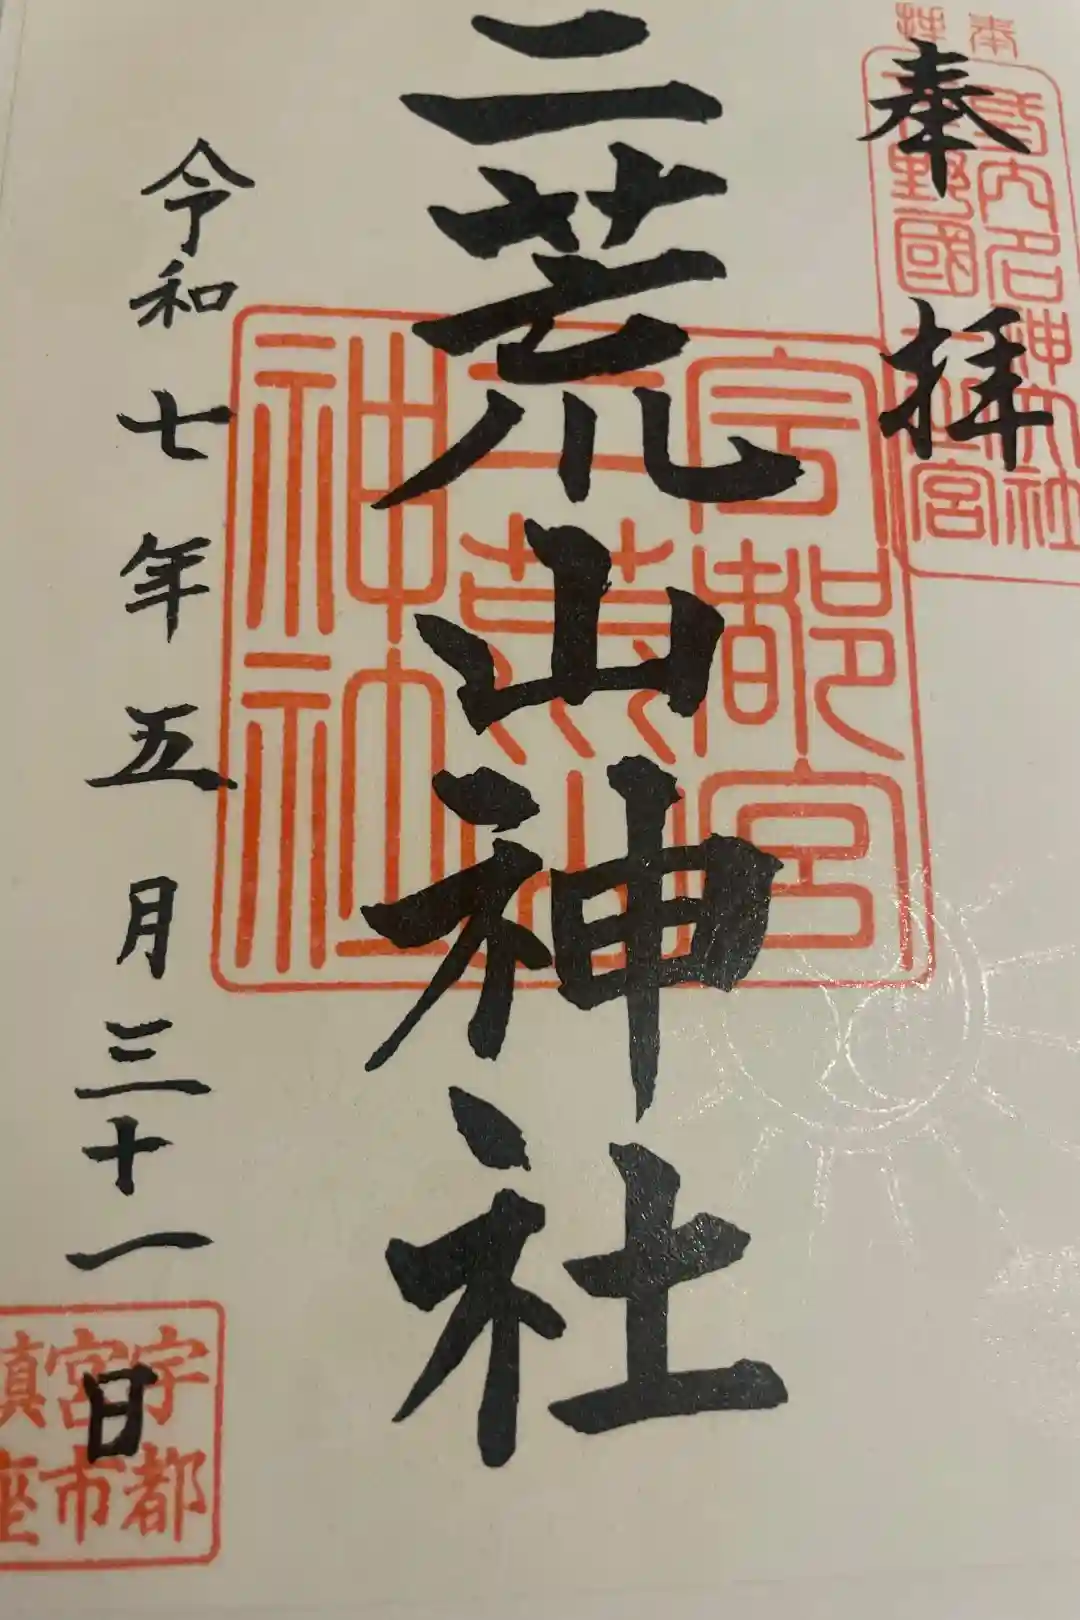 奉拝
奉拝
式内名神大社
下野國一之宮
二荒山神社
宇都宮
二荒山
神社
令和七年五月三十一日
宇都
宮市
鎮座